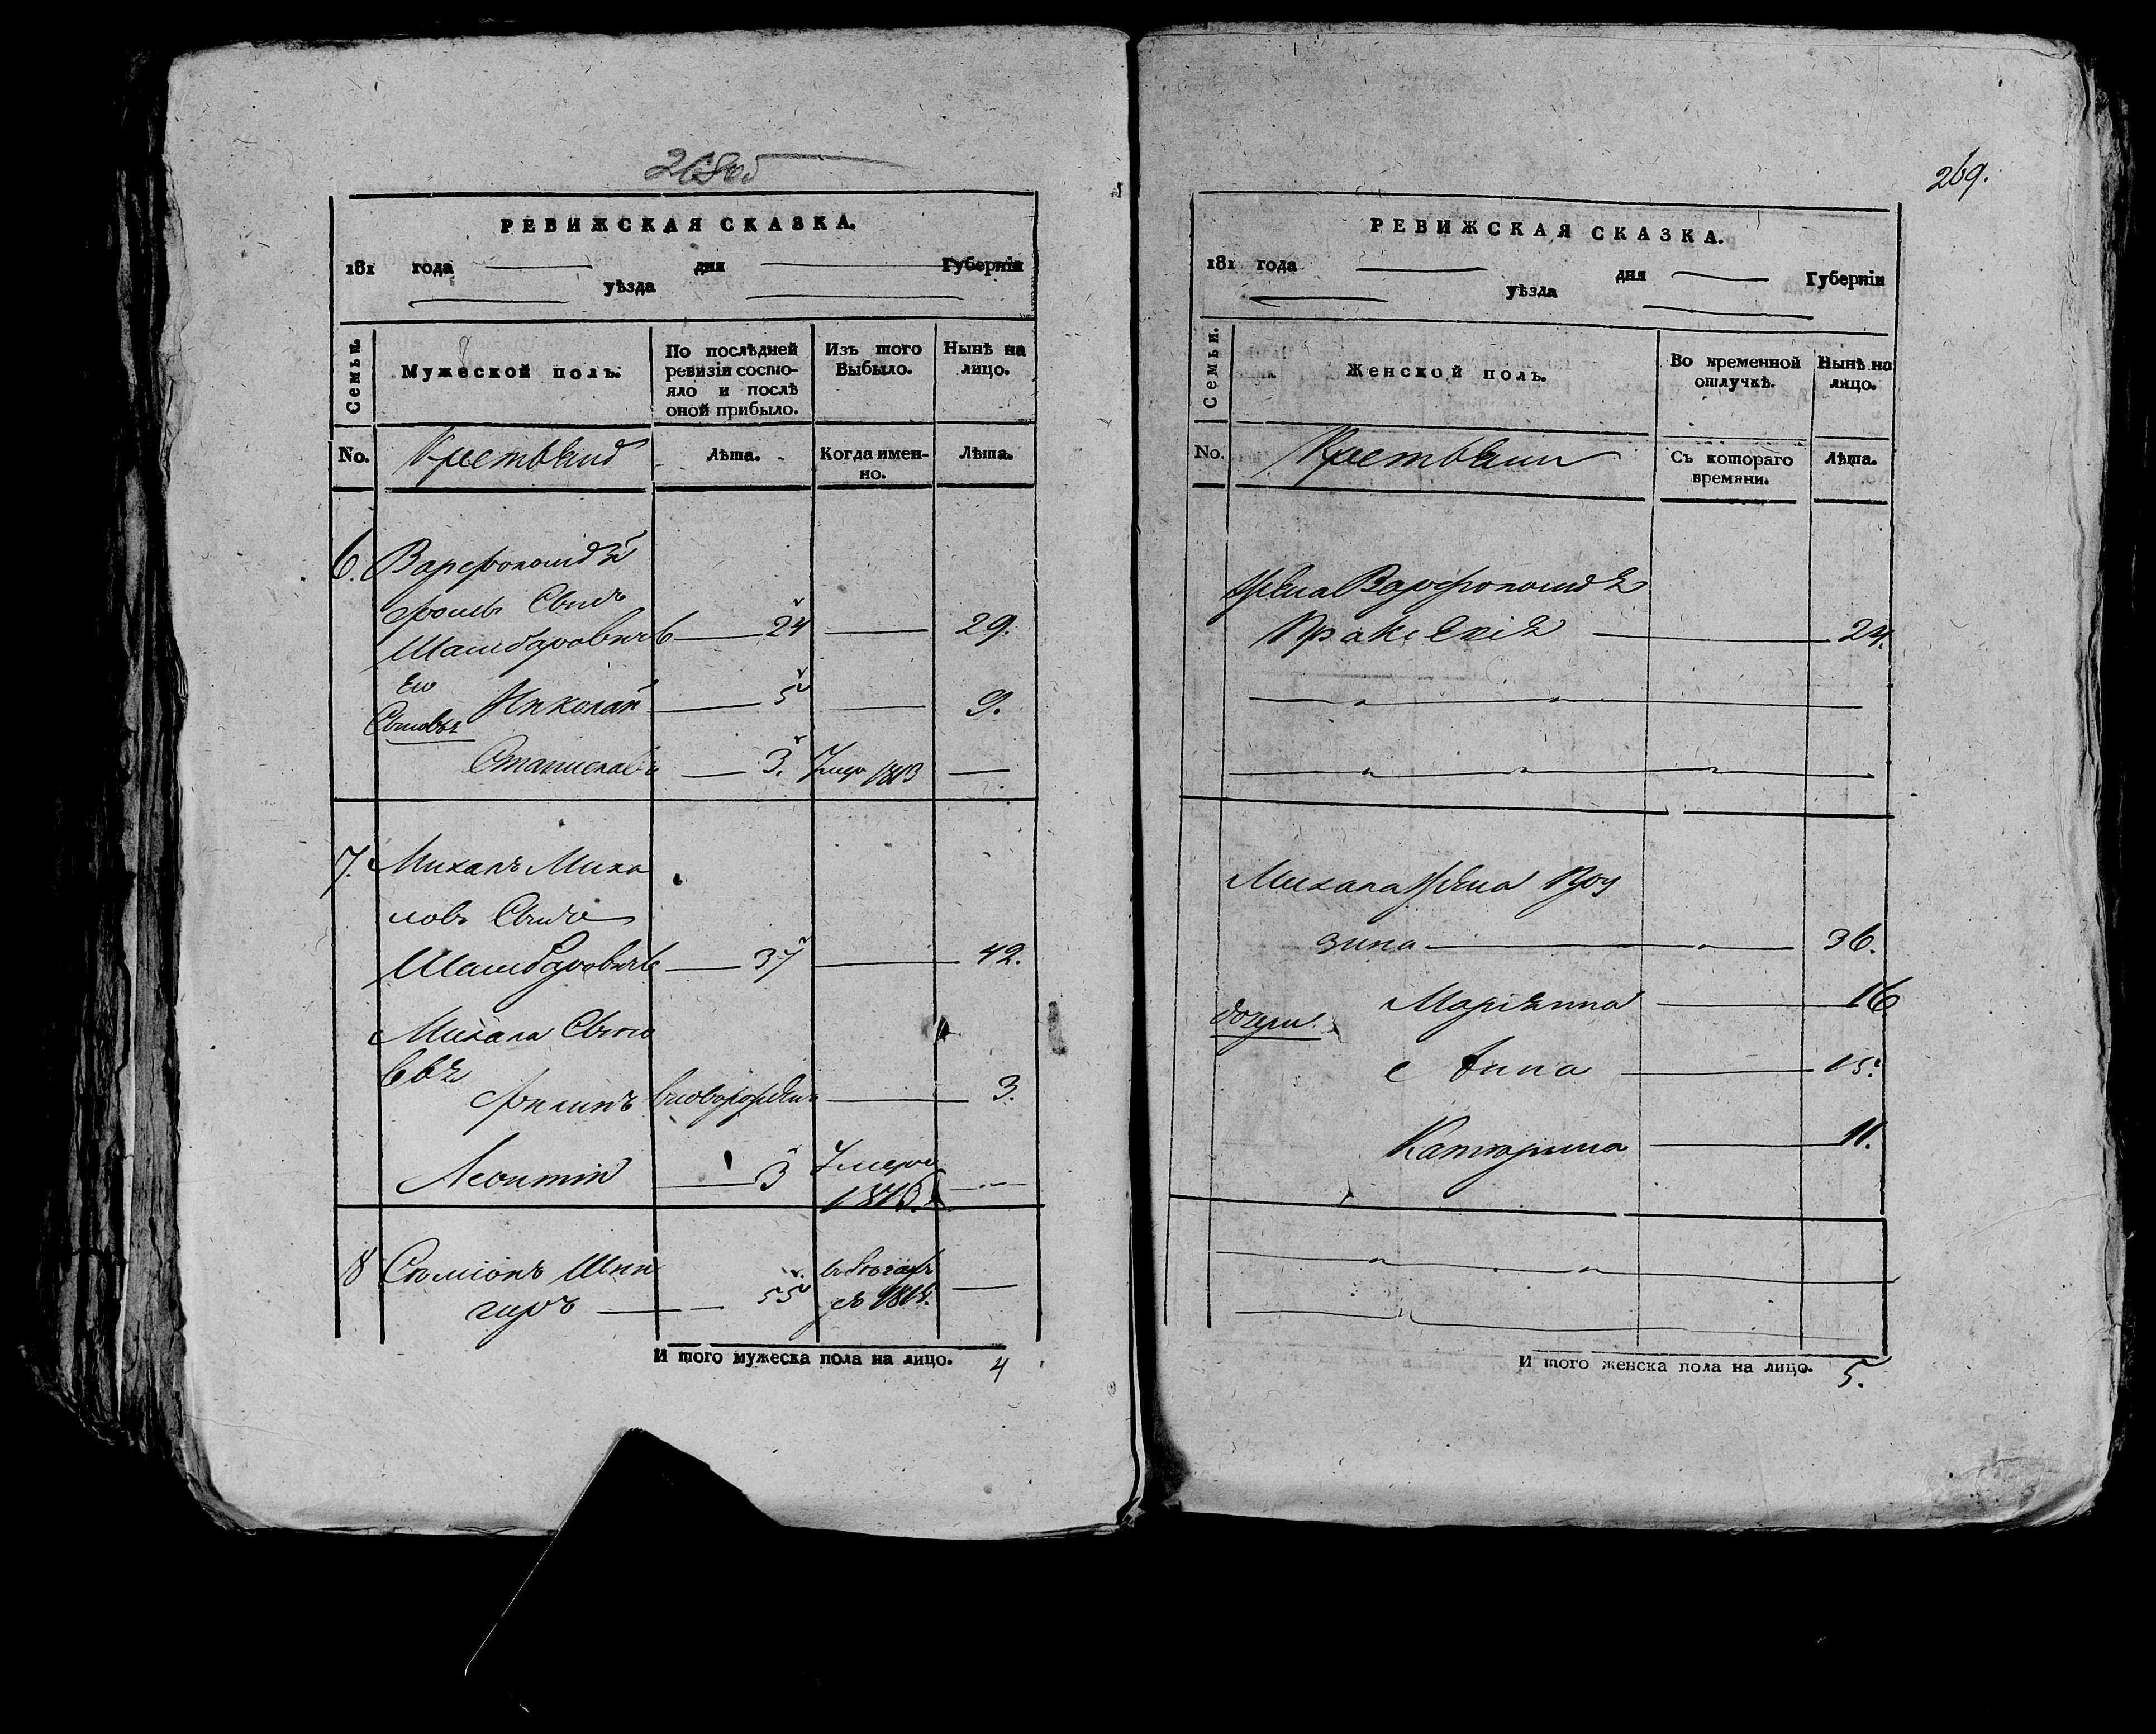 268об
РЕВИЖСКАЯ СКАЗКА.
181 года дня Губернiи
уѣзда
Семьи.
Мужеской полъ.
По послѣдней
ревизiи состо-
яло и послѣ
оной прибыло.
Изъ того
Выбыло.
Нынѣ на
лицо.
No.
Крестьяне
Лѣта.
Когда имен-
но.
Лѣта.
6. Варфоломей
Сынъ
24 29.
Его
Сыновья
Николай 5 9.
Станиславъ 3. 1813
7. Михалъ Миха
ловъ Сынъ
37 42.
Михала Сыно
вья
Филипъ новорожденъ 3.
Леонтiй 3 умеръ
8 Симiонъ
55
И того мужеска пола на лицо. 4
269.
РЕВИЖСКАЯ СКАЗКА.
181 года дня Губернiи
уѣзда
Семьи.
Женской полъ.
Во временной
отлучкѣ.
Нынѣ на
лицо.
No.
Крестьяни
Съ котораго
времяни.
Лѣта.
Жена Варфоломея
Пракседiя 24.
Михала Жена Роу
зина 36.
Дочери
Марiянна 16
Анна 15.
Катерина 11.
И того женска пола на лицо. 5.